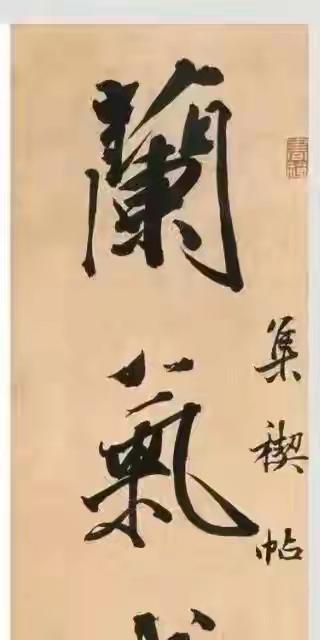 集禊帖
蘭氣